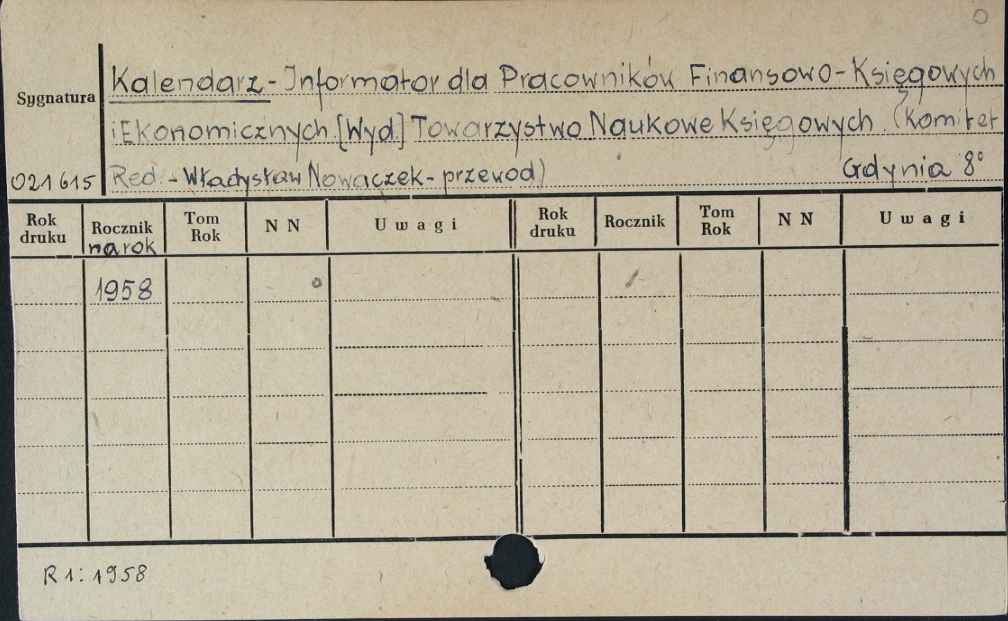 Kalendarz - Informator dla Pracowników Finansowo - Księgowych
Sygnatura
i Ekonomicznych. [Wyd] Towarzystwo Naukowe Księgowych. (Komitet
021615 Red. - Władysław Nowaczek - przewod) Gdynia 8°
Rok druku Rocznik na rok Tom Rok N N Uwagi Rok druku Rocznik Tom Rok N N Uwagi
1958
R 1: 1958